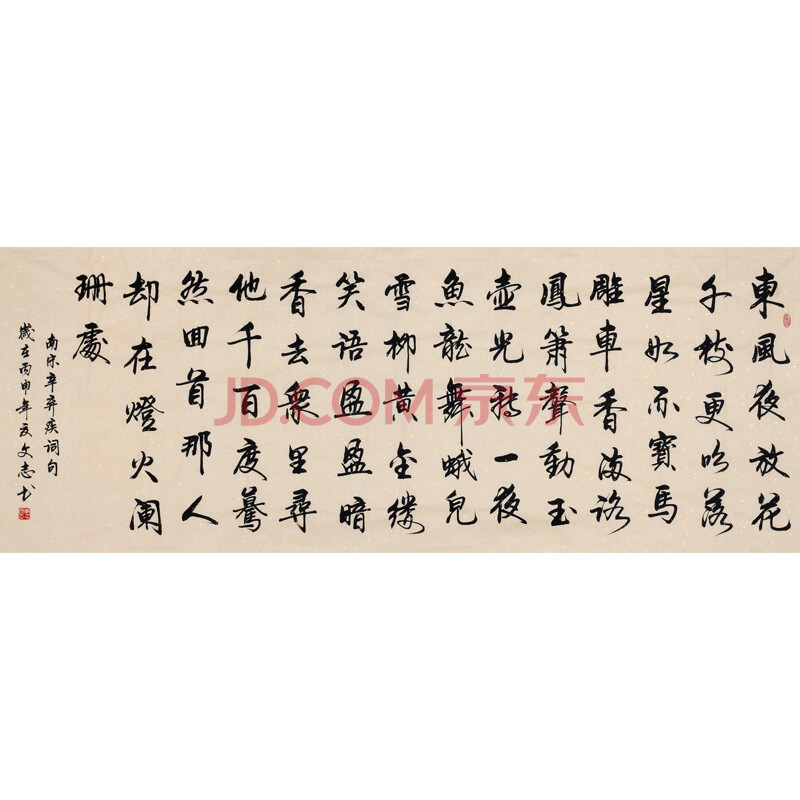 東風夜放花
千树更吹落
星如雨寶馬
雕車香滿路
鳳簫聲動玉
壺光轉一夜
魚龍舞蛾兒
雪柳黄金缕
笑語盈盈暗
香去衆里尋
他千百度驀
然回首那人
却在燈火阑
珊處
南宋辛弃疾词句
歲在丙申年夏文志书
JD.COM 京东